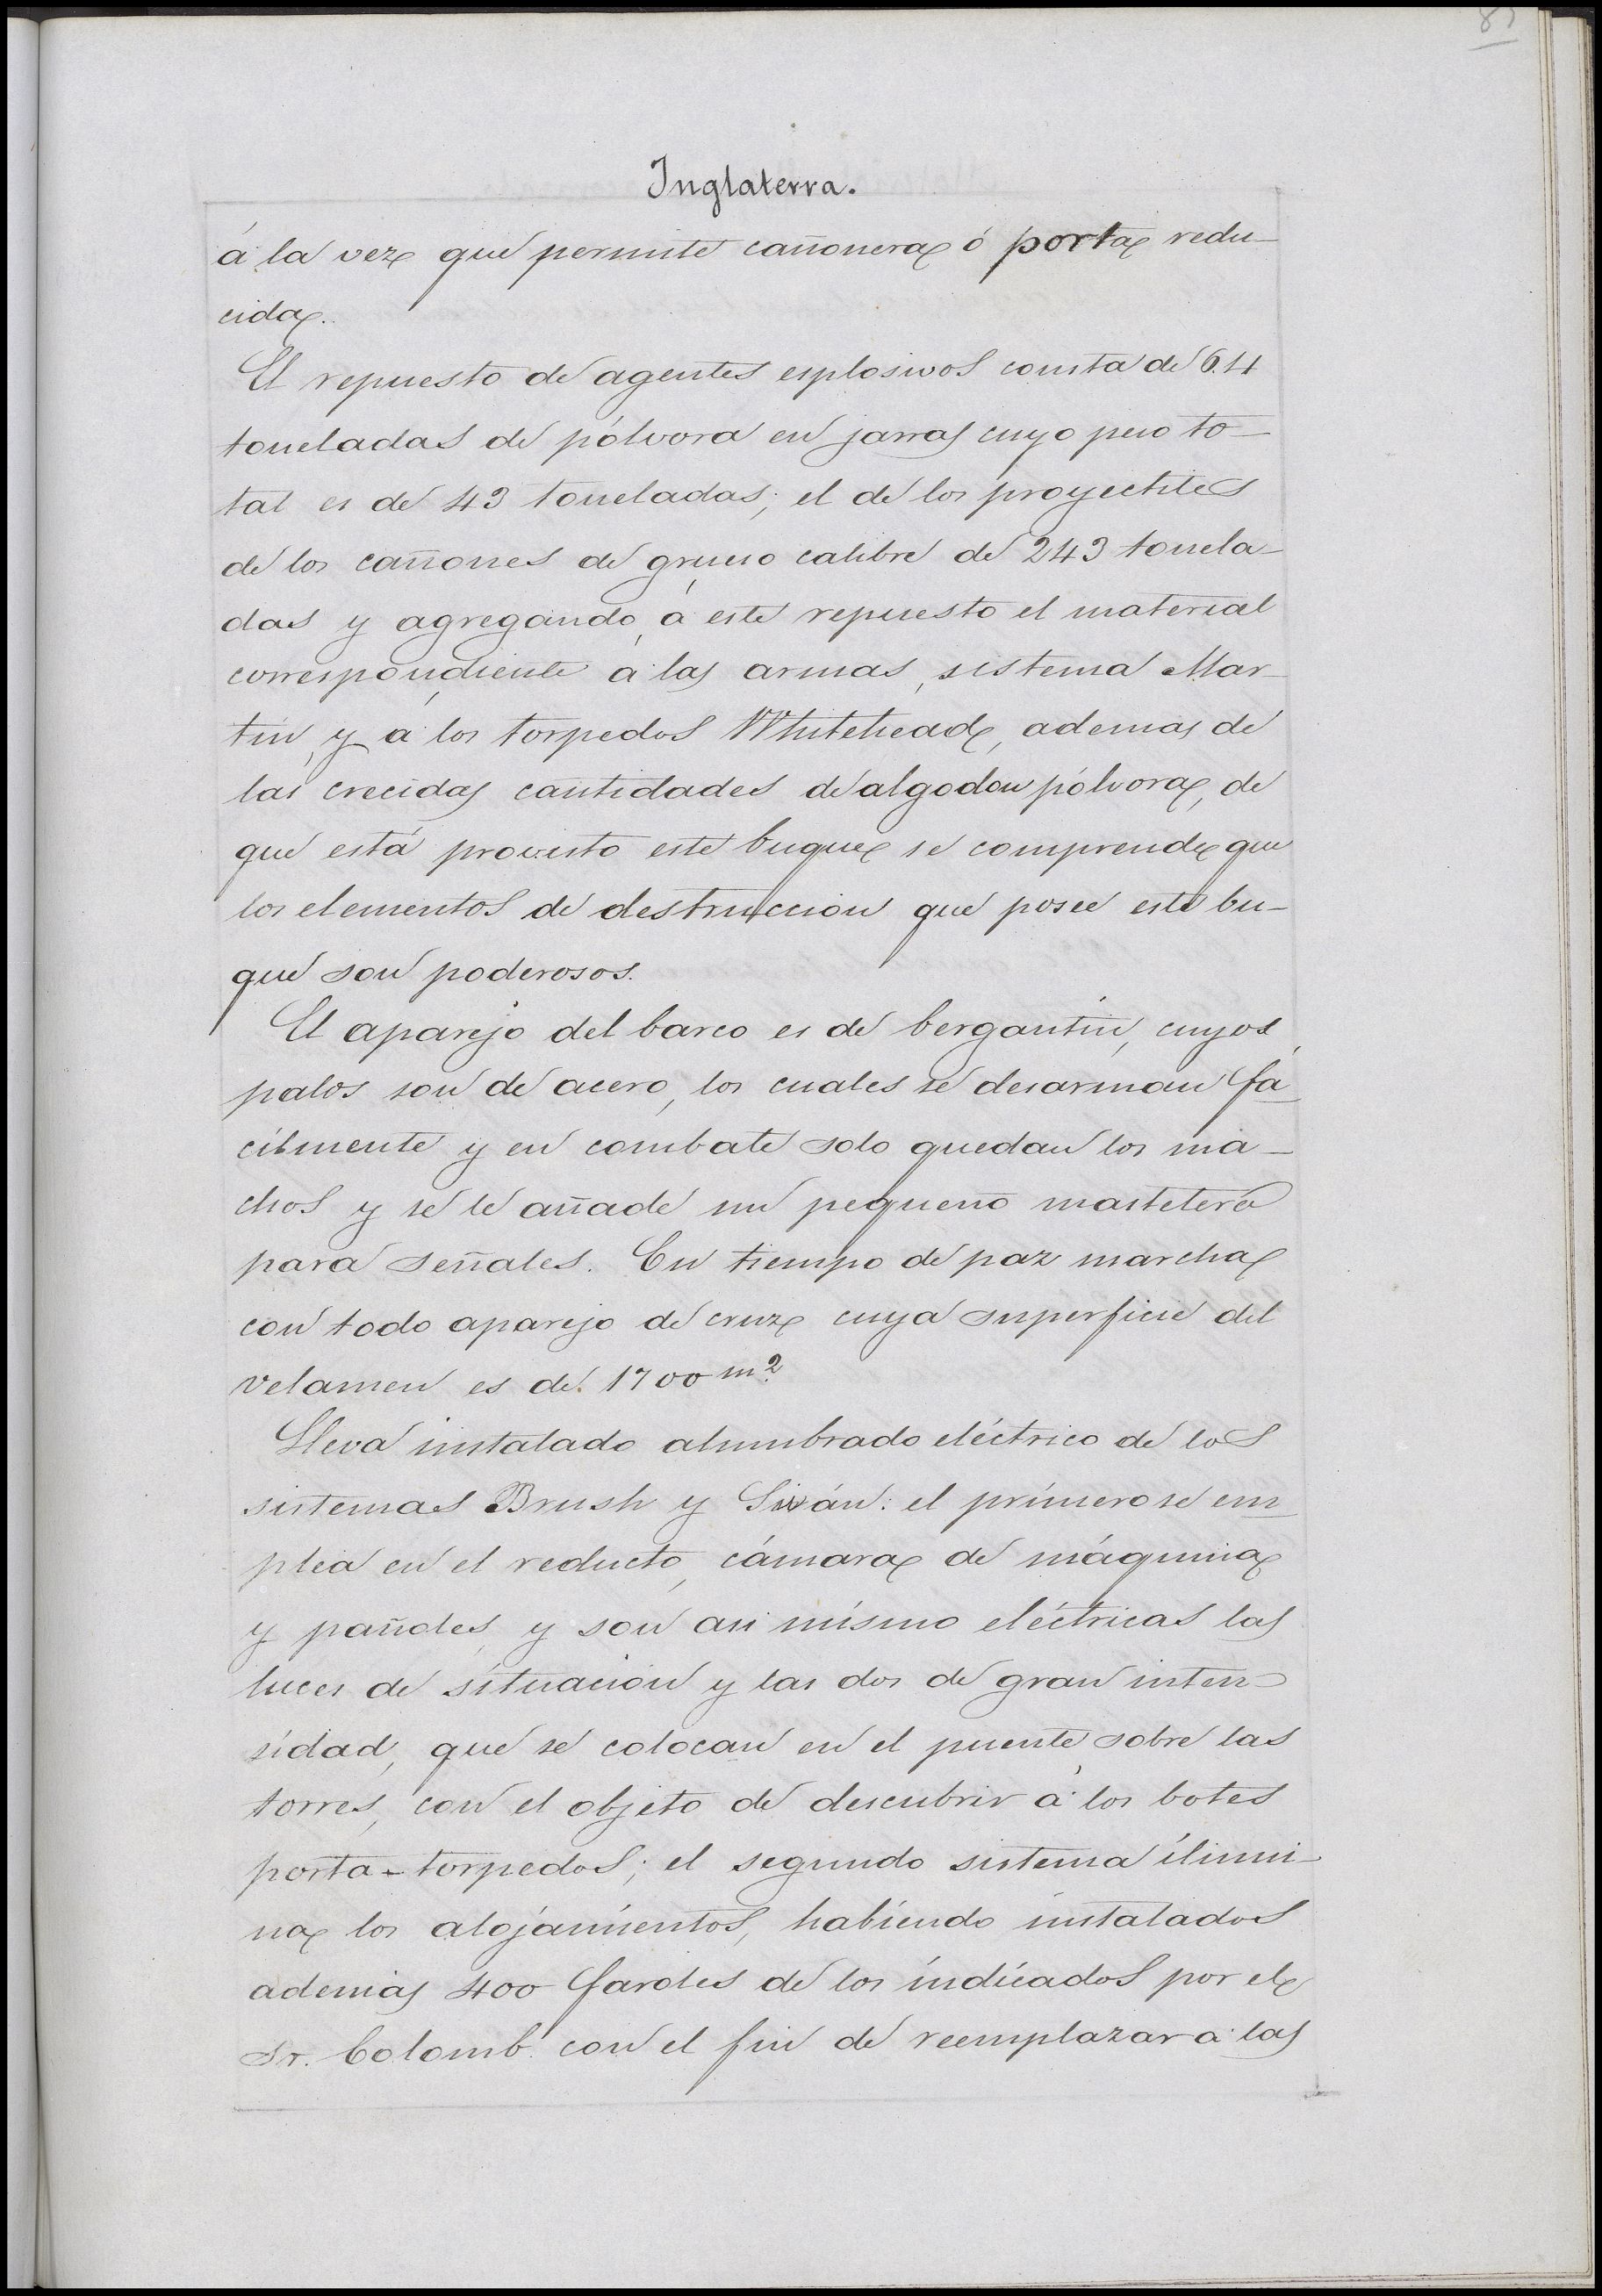 Inglaterra.
á la vez que permite cañonera ó porta redu-
cida.
El repuesto de agentes esplosivos consta de 64
toneladas de pólvora en jarras cuyo peso to-
tal es de 43 toneladas; el de los proyectiles
de los cañones de grueso calibre de 243 tonela-
das y agregando á este repuesto el material
correspondiente á las armas, sistema Mar-
tin, y á los torpedos Whitehead, ademas de
las crecidas cantidades de algodon pólvora, de
que está provisto este buque se comprende que
los elementos de destruccion que posee este bu-
que son poderosos.
El aparejo del barco es de bergantin, cuyos
palos son de acero, los cuales se desarman fá
cilmente y en combate solo quedan los ma-
chos y se le añade un pequeño mastelero
para señales. En tiempo de paz marcha
con todo aparejo de cruz cuya superficie del
velamen es de 1700 m²
Lleva instalado alumbrado eléctrico de los
sistemas Brush y Siván: el primero se em
plea en el reducto, cámara de máquina
y pañoles, y son asi mismo eléctricas las
luces de situacion y las dos de gran inten-
sidad, que se colocan en el puente sobre las
torres, con el objeto de descubrir á los botes
porta-torpedos; el segundo sistema ilumi-
na los alojamientos, habiendo instalados
ademas 400 faroles de los indicados por el
Sr. Colomb con el fin de reemplazar á las